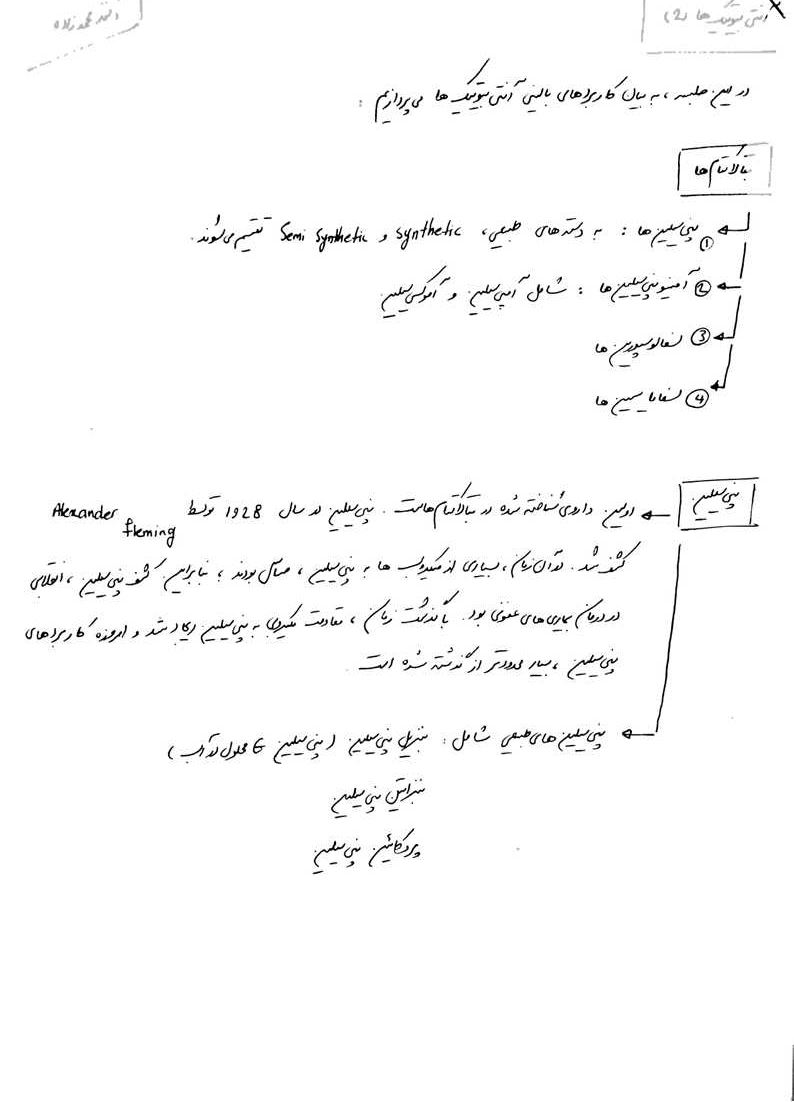 آنتی بیوتیک ها (2)
محمدزاده
در این جلسه، به بیان کاربردهای بالینی آنتی بیوتیک ها می پردازیم :
بتالاکتام ها
① پنی سیلین ها : به دسته های طبیعی، synthetic و Semi synthetic تقسیم می شوند.
② آمینوپنی سیلین ها : شامل آمپی سیلین و آموکسی سیلین
③ سفالوسپورین ها
④ سفامایسین ها
پنی سیلین
اولین داروی شناخته شده در بتالاکتام هاست. پنی سیلین در سال 1928 توسط Alexander fleming
کشف شد. در آن زمان، بسیاری از میکروب ها به پنی سیلین، حساس بودند؛ بنابراین کشف پنی سیلین، انقلابی
در درمان بیماری های عفونی بود. با گذشت زمان، مقاومت میکروبی به پنی سیلین ایجاد شد و امروزه کاربردهای
پنی سیلین، بسیار محدودتر از گذشته شده است.
پنی سیلین های طبیعی شامل : بنزیل پنی سیلین (پنی سیلین G محلول در آب)
بنزاتین پنی سیلین
پروکائین پنی سیلین